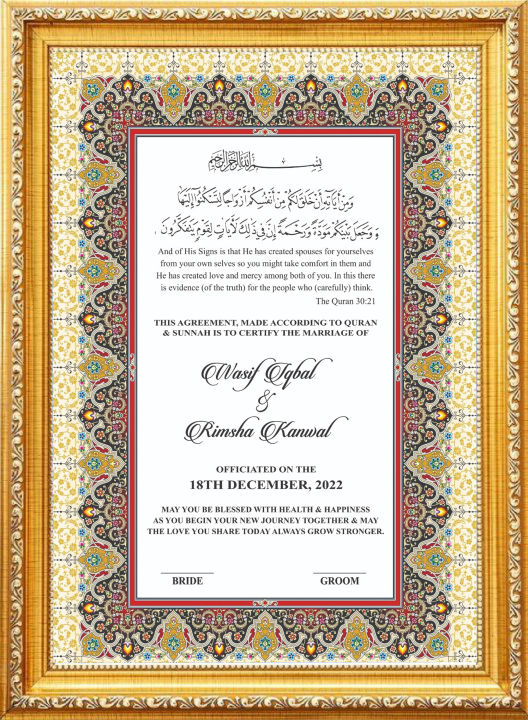 بِسْمِ اللهِ الرَّحْمٰنِ الرَّحِيْمِ
وَمِنْ آيَاتِهِ أَنْ خَلَقَ لَكُمْ مِنْ أَنْفُسِكُمْ أَزْوَاجًا لِتَسْكُنُوا إِلَيْهَا
وَجَعَلَ بَيْنَكُمْ مَوَدَّةً وَرَحْمَةً إِنَّ فِي ذَلِكَ لَآيَاتٍ لِقَوْمٍ يَتَفَكَّرُونَ
And of His Signs is that He has created spouses for yourselves
from your own selves so you might take comfort in them and
He has created love and mercy among both of you. In this there
is evidence (of the truth) for the people who (carefully) think.
The Quran 30:21
THIS AGREEMENT, MADE ACCORDING TO QURAN
& SUNNAH IS TO CERTIFY THE MARRIAGE OF
Wasif Iqbal
&
Rimsha Kanwal
OFFICIATED ON THE
18TH DECEMBER, 2022
MAY YOU BE BLESSED WITH HEALTH & HAPPINESS
AS YOU BEGIN YOUR NEW JOURNEY TOGETHER & MAY
THE LOVE YOU SHARE TODAY ALWAYS GROW STRONGER.
BRIDE GROOM